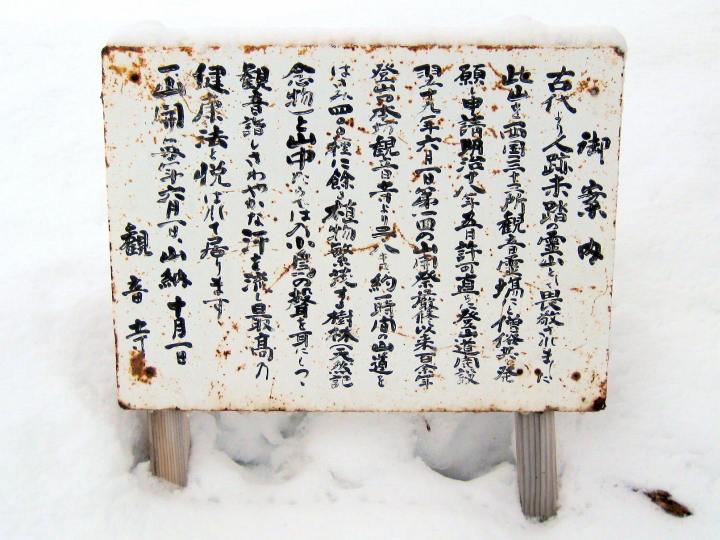 御案内
古代より人跡未踏の霊山として畏敬されました
此山を西国三十三所観音霊場にと僧俗共に発
願し申請明治十八年五月許可直に登山道開設
翌十九年六月一日第一回の山開祭厳修以来百余年
登山口本坊観音寺より 約一時間の山道を
四〇〇種に余る植物繁茂する樹林(天然記
念物)と山中ならではの小鳥の聲を耳にしつつ
観音詣しさわやかな汗を流し最高の
健康法と悦ばれて居ります
山開毎年六月一日、山納十月一日
観音寺